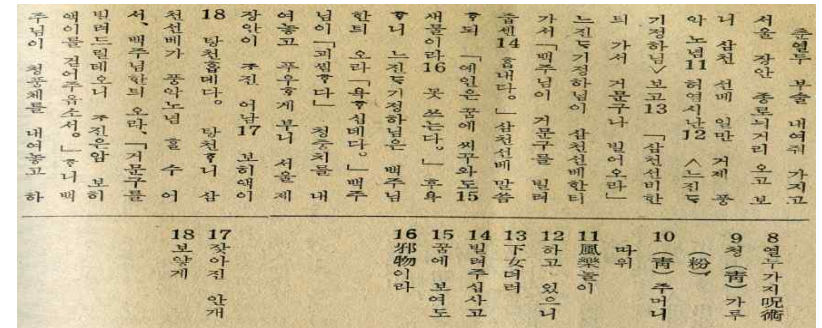 춘열두 부술 내여줘 가지고
서울 장안 종로늬거리 오고 보
니 삼천 선배 일만 거제 풍
악 노념11 허염시난12 <느진ᄃᆞ
기정하님>보고13 「삼천선비한
틔 가서 거문구나 빌어오라」
느진ᄃᆞ기정하님이 삼천선배한티
가서 「백주님이 거문구를 빌려
줍센14 흡내다。」삼천선배 말씀
ᄒᆞ되 「예인은 꿈에 씨꾸와도15
새물이라16 못 쓰는다。」후욕
ᄒᆞ니 느진ᄃᆞ기정하님은 백주님
한틔 오라「욕ᄒᆞ십데다。」백주
님이 「괘씸ᄒᆞ다」 청중치를 내
여놓고 푸우ᄒᆞ게 부니 서울 제
장안이 ᄌᆞ진 어남17 보히얘이
18 탕천흡데다。 탕천ᄒᆞ니 삼
천선베가 풍악노념 흘 수 어
서、백주님한틔 오라、「거문구를
빌려드릴테오니 ᄌᆞ진은암 보히
얘이를 걷어주유소서。」ᄒᆞ니 백
주님이 청풍체를 내여놓고 하
8 열두가지呪術
9 청(靑)가루
(粉)
10 (靑)주머니
따위
11 風樂놀이
12 하고 있으니
13 下女더러
14 빌려주십사고
15 꿈에 보여도
16 邪物이라
17 잦아진 안개
18 보얗게